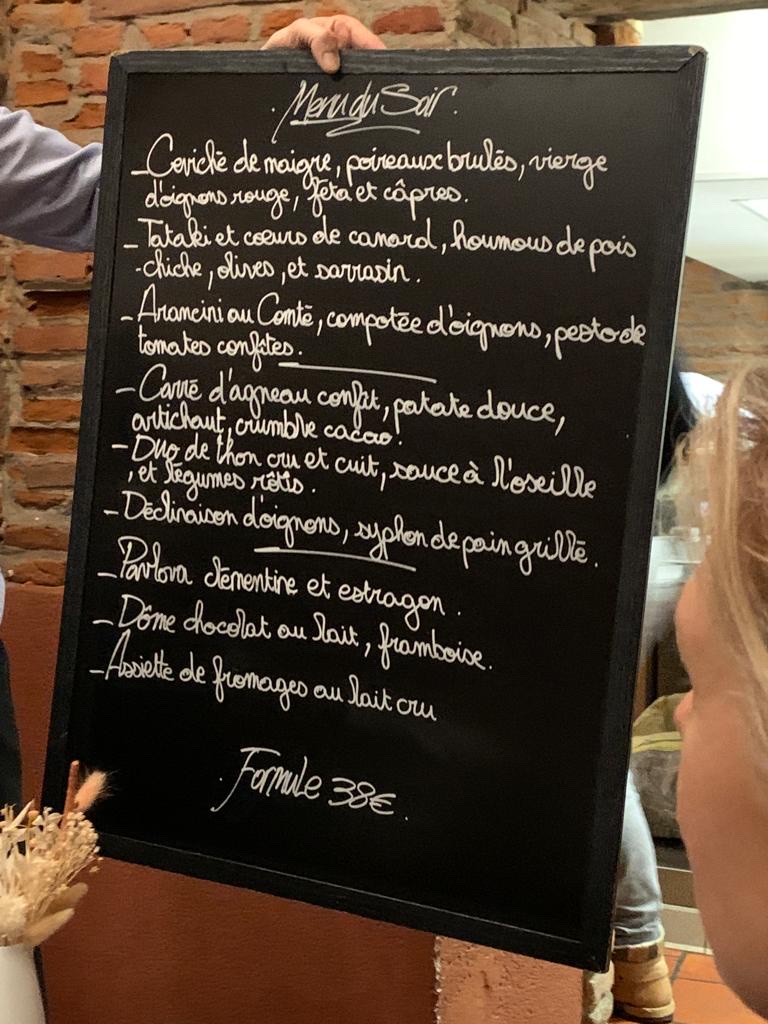 . Menu du Soir.
_ Ceviché de maigre, poireaux brulés, vierge
d'oignons rouge, féta et câpres.
_ Tataki et coeurs de canard, houmous de pois
-chiche, olives, et sarrasin.
_ Arancini au Comté, compotée d'oignons, pesto de
tomates confites.
_ Carré d'agneau confit, patate douce,
artichaut, crumble cacao.
_ Duo de thon cru et cuit, sauce à l'oseille
, et légumes rôtis.
_ Déclinaison d'oignons, syphon de pain grillé.
_ Pavlova clémentine et estragon.
_ Dôme chocolat au lait, framboise.
_ Assiette de fromages au lait cru
. Formule 38€.